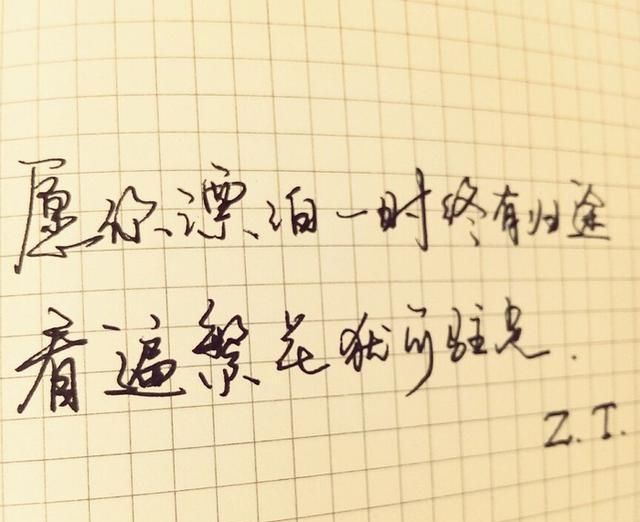 愿你漂泊一时终有归途
看遍繁花犹可驻足.
Z.T.